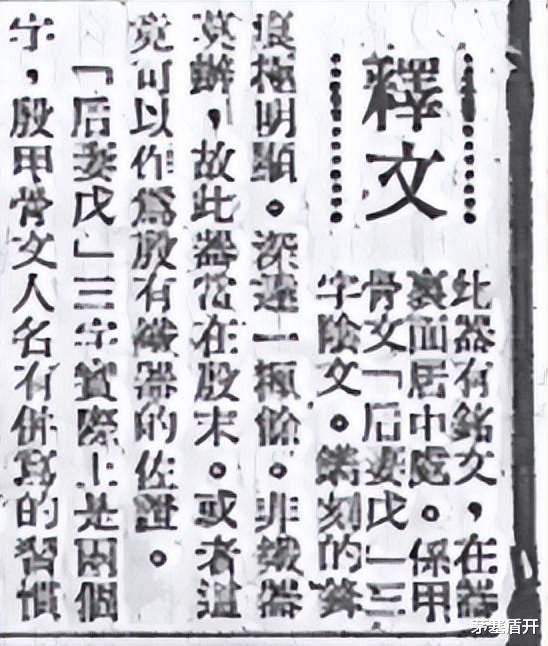 釋文
此器有銘文，在器
裏面居中處。係甲
骨文「后妻戊」三
字陰文。鐫刻的
痕極明顯。深達一餘。非鐵器
莫辦，故此器當在殷末。或者這
竟可以作爲殷有鐵器的佐證。
「后妻戊」三字實際上是兩個
字，殷甲骨文人名有併寫的習慣
茅塞盾开